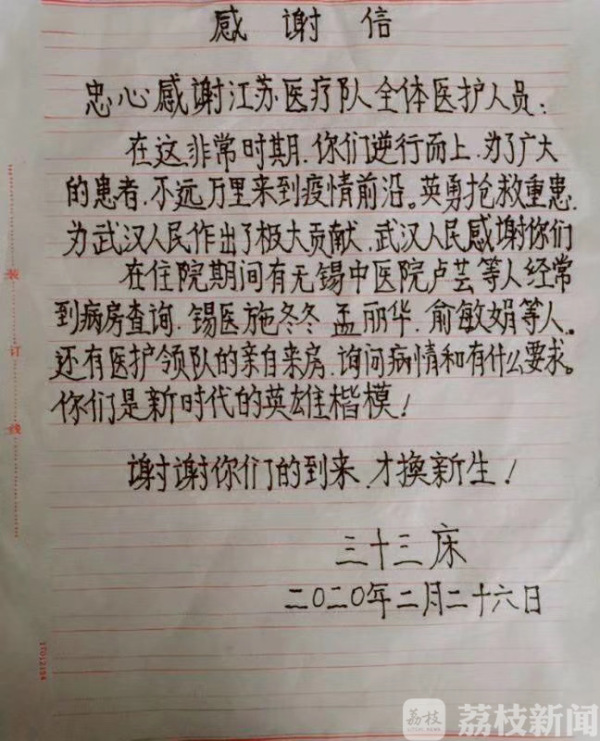 感谢信
忠心感谢江苏医疗队全体医护人员:
在这非常时期.你们逆行而上.为了广大
的患者.不远万里来到疫情前沿。英勇抢救重患.
为武汉人民作出了极大贡献.武汉人民感谢你们
在住院期间有无锡中医院卢芸等人经常
到病房查询.锡医施冬冬 孟丽华.俞敏娟等人。
还有医护领队的亲自来房.询问病情和有什么要求。
你们是新时代的英雄楷模!
谢谢你们的到来.才换新生!
三十三床
二〇二〇年二月二十六日
装
订
线
17012194
荔枝
荔枝新闻